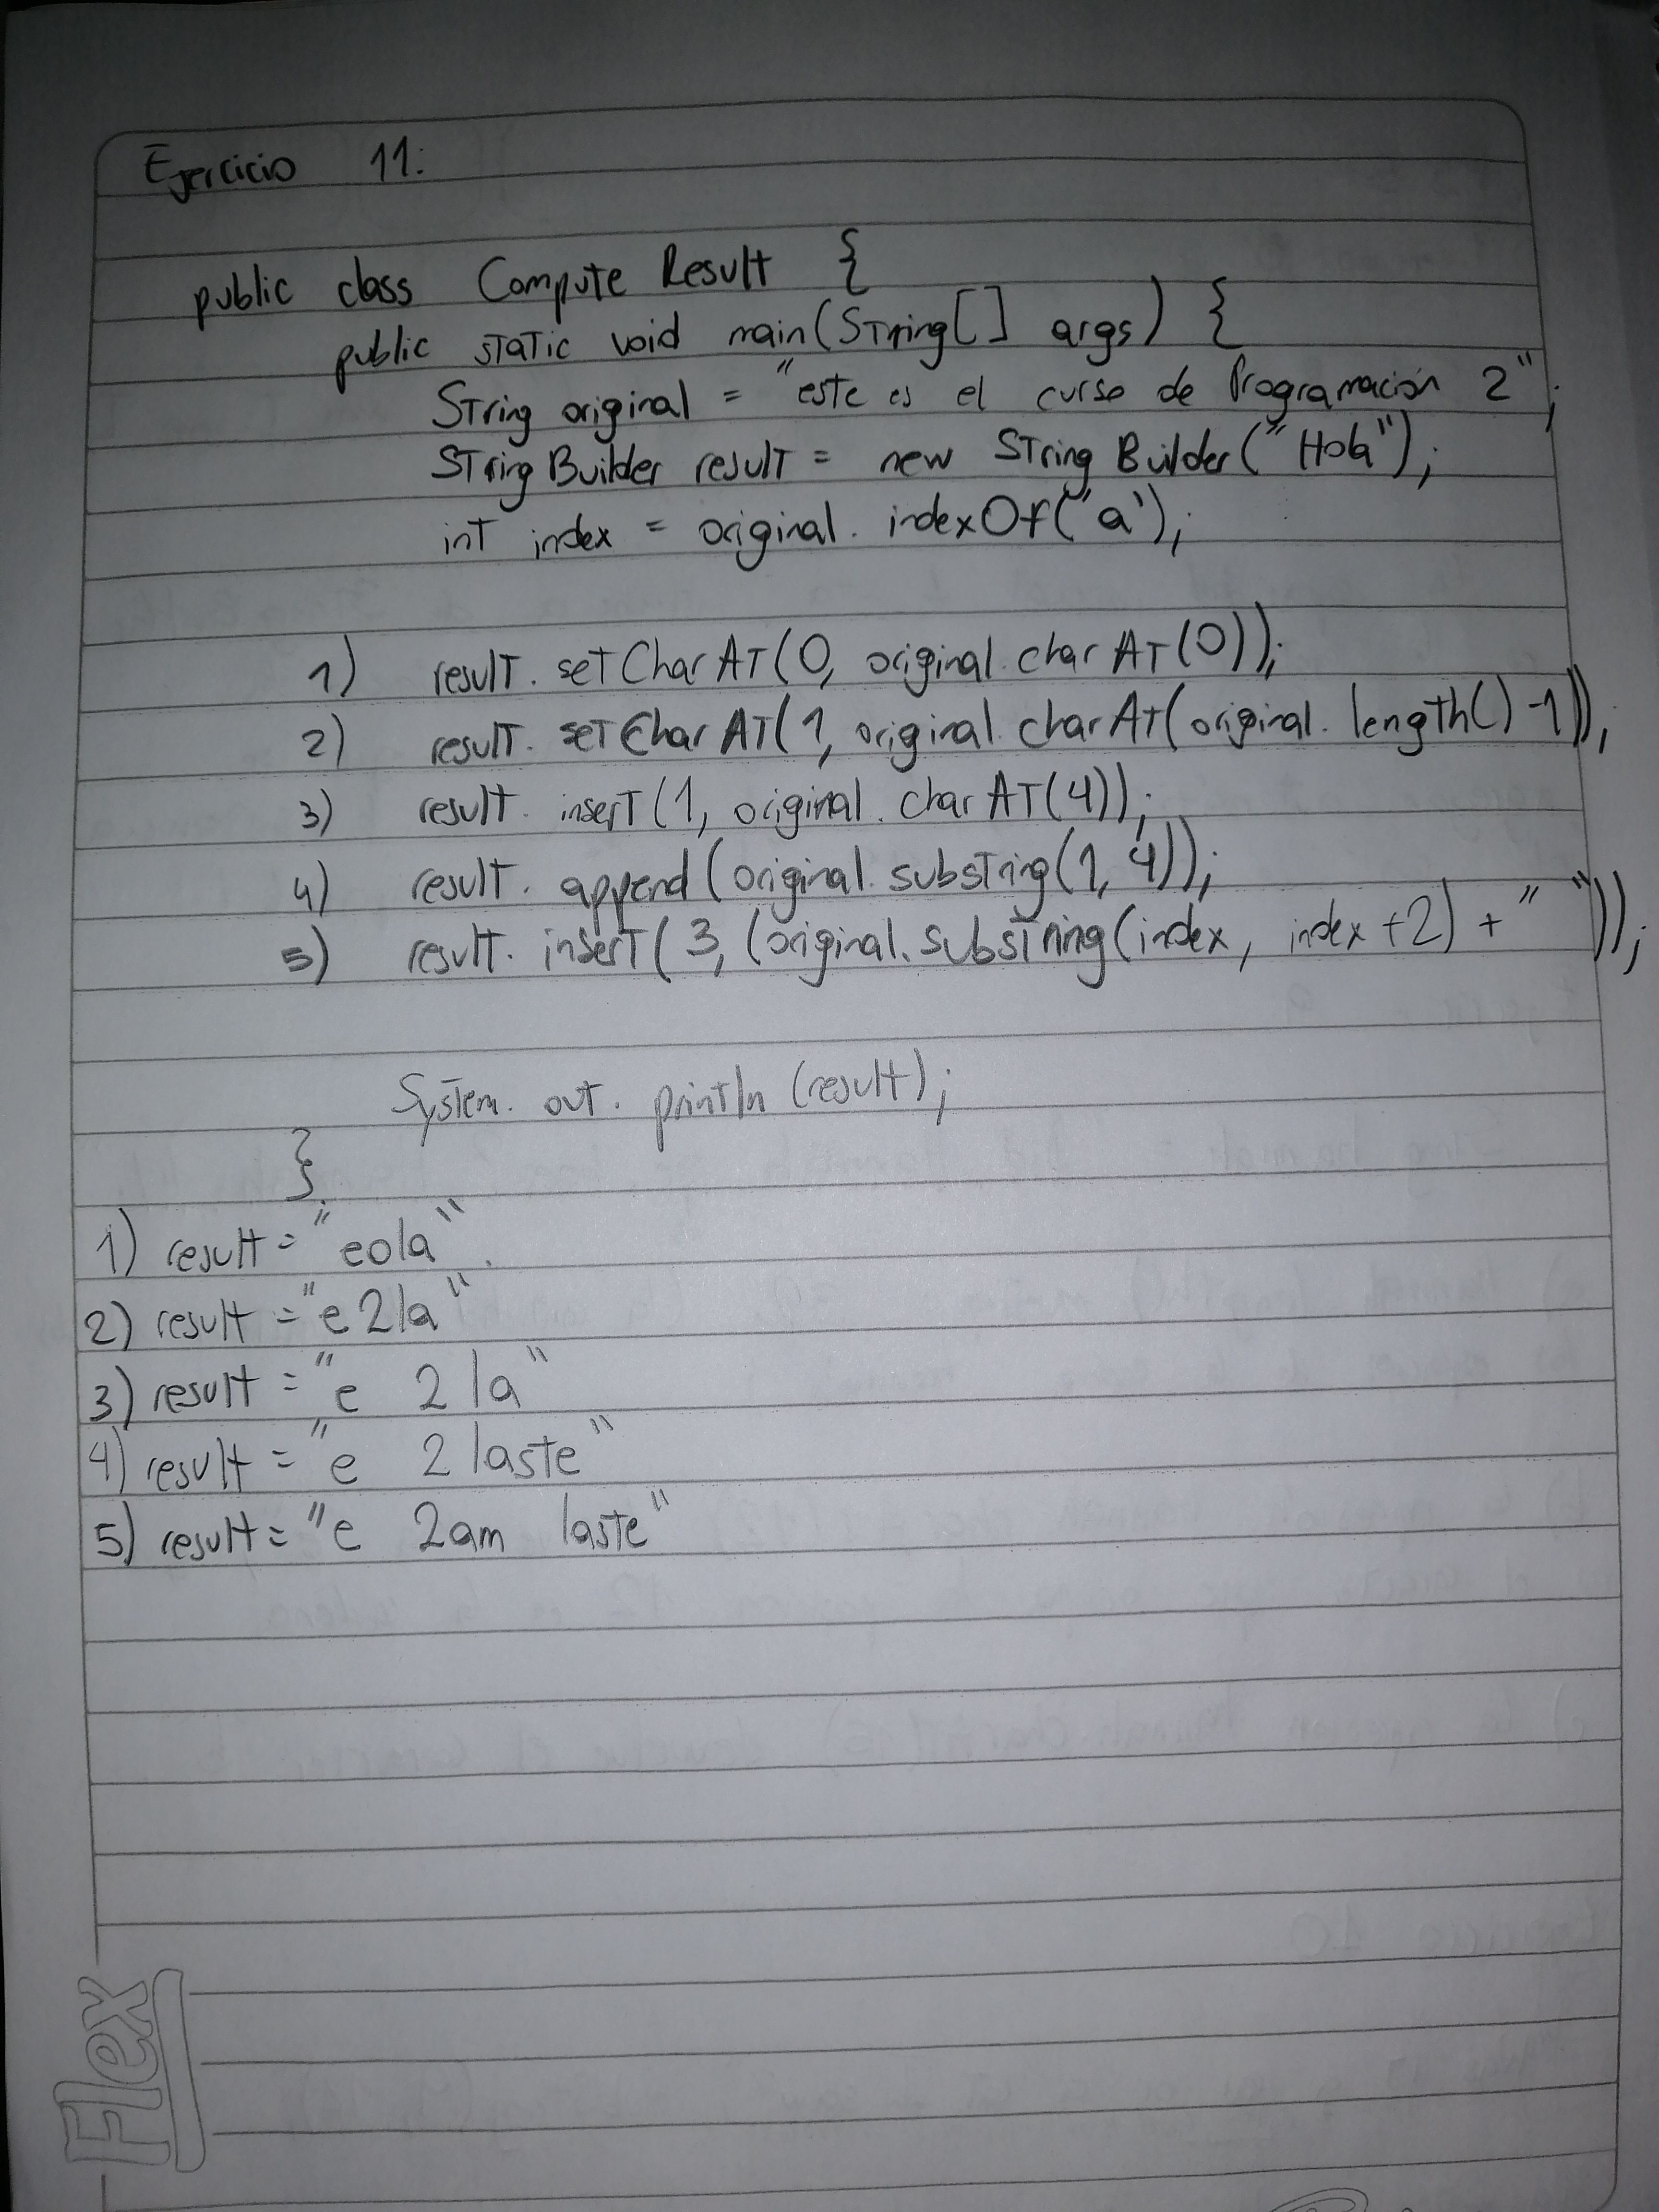 Ejercicio 11:
public class Compute Result {
public static void main(String[] args) {
String original = "este es el curso de Programación 2";
StringBuilder result = new StringBuilder("Hola");
int index = original.indexOf('a');
1) result.setCharAt(0, original.charAt(0));
2) result.setCharAt(1, original.charAt(original.length()-1));
3) result.insert(1, original.charAt(4));
4) result.append(original.substring(1,4));
5) result.insert(3, (original.substring(index, index+2) + " "));
System.out.println(result);
}
1) result = "eola".
2) result = "e2la"
3) result = "e 2la"
4) result = "e 2laste"
5) result = "e 2am laste"
Flex